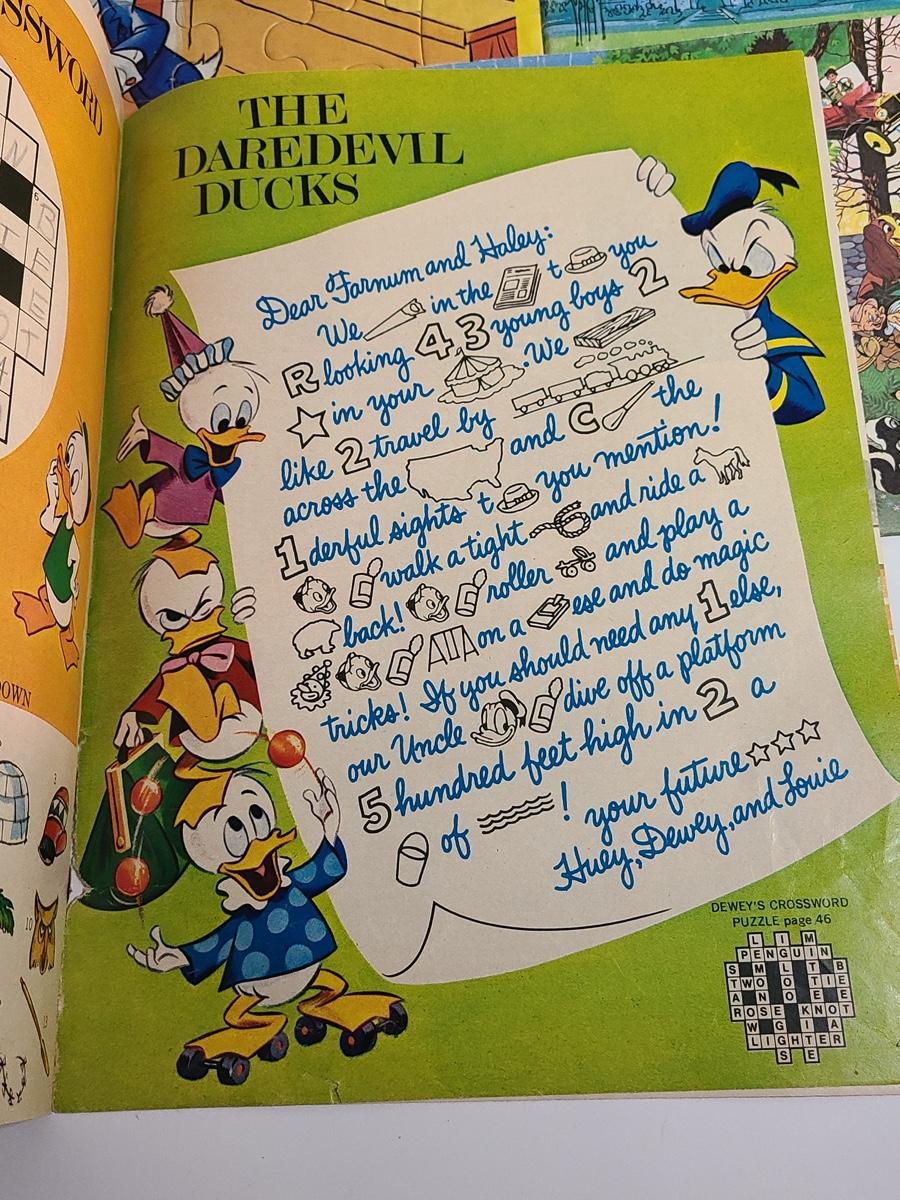 SSWORD
THE
DAREDEVIL
DUCKS
Dear Farnum and Haley:
We in the t you
R looking 4 3 young boys 2
in your . We
like 2 travel by
across the and C the
1derful sights t you mention!
walk a tight and ride a
back! roller and play a
on a ese and do magic
tricks! If you should need any 1 else,
our Uncle dive off a platform
5 hundred feet high in 2 a
of !
your future
Huey, Dewey, and Louie
DEWEY'S CROSSWORD
PUZZLE page 46
PENGUIN
TWO
TIE
ROSE
KNOT
LIGHTER
DOWN
10